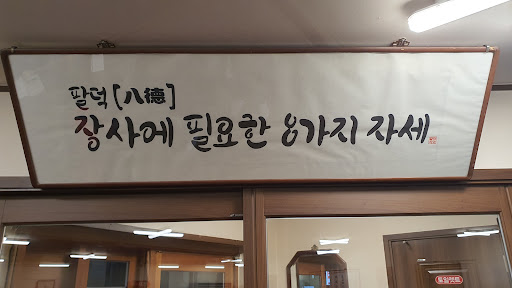 팔덕 [八德]
장사에 필요한 8가지 자세